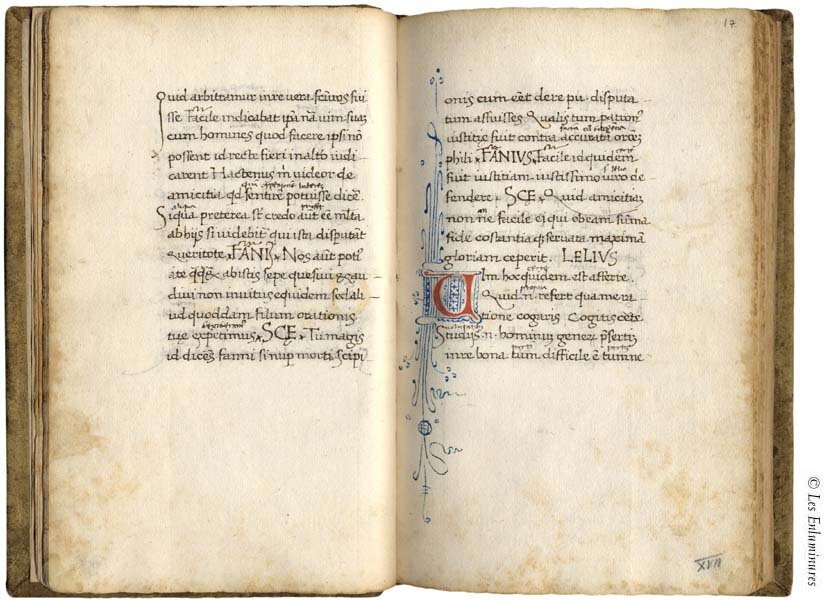 Quid arbitramur in re vera fcuros fui
sse Facile indicabat ipa nã uim suaz
cum homines quod facere ipsi nõ
possent id recte fieri in alto iudi
carent Hactenus m̃ uideor de
amicitia qd sentire potuisse dicẽ.
Siqua preterea st̃ credo aut eẽ mlta
ab hijs si uidebit̃ qui ista disputãt
queritote. FANIS. Nos aut poti9
a te abistis sepe quesiui & au
diui non inuitus equidem sed ali
ud quoddam filum orationis
tue expetimus. SCE. Tu magis
id diceš fanni si nup in orti scipi
17
onis cum eẽt de re pu. disputa
tum affuisses Qualis tum patron9
iustitie fuit contra accurata oroẽz
phili. FANIUS. Facile id quidem
fuit iustitiam iustissimo uiro de
fendere. SCE. Quid amicitiaz
non ne facile ei qui ob eam sũma
fide costantia seruata maximã
gloriam ceperit. LELIUS
UIm hoc quidem est afferre.
Quid n̄ refert qua me ra
tione cogatis Cogitis cete
Studijs n̄ hominuz generz p̃sertiz
in re bona tum difficile ẽ tum ne
XVII
© Les Enluminures